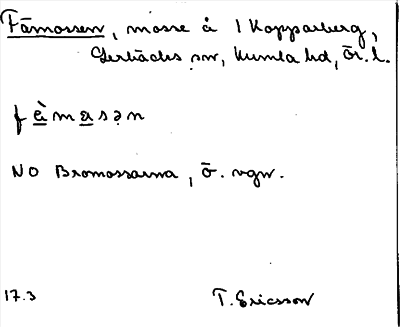 Fåmossen, mosse å 1 Kopparberg,
Lerbäcks sn, Kumla hd, Ör. l.
NO Bromossarna, ö. vgn.
17.3 T. Ericsson